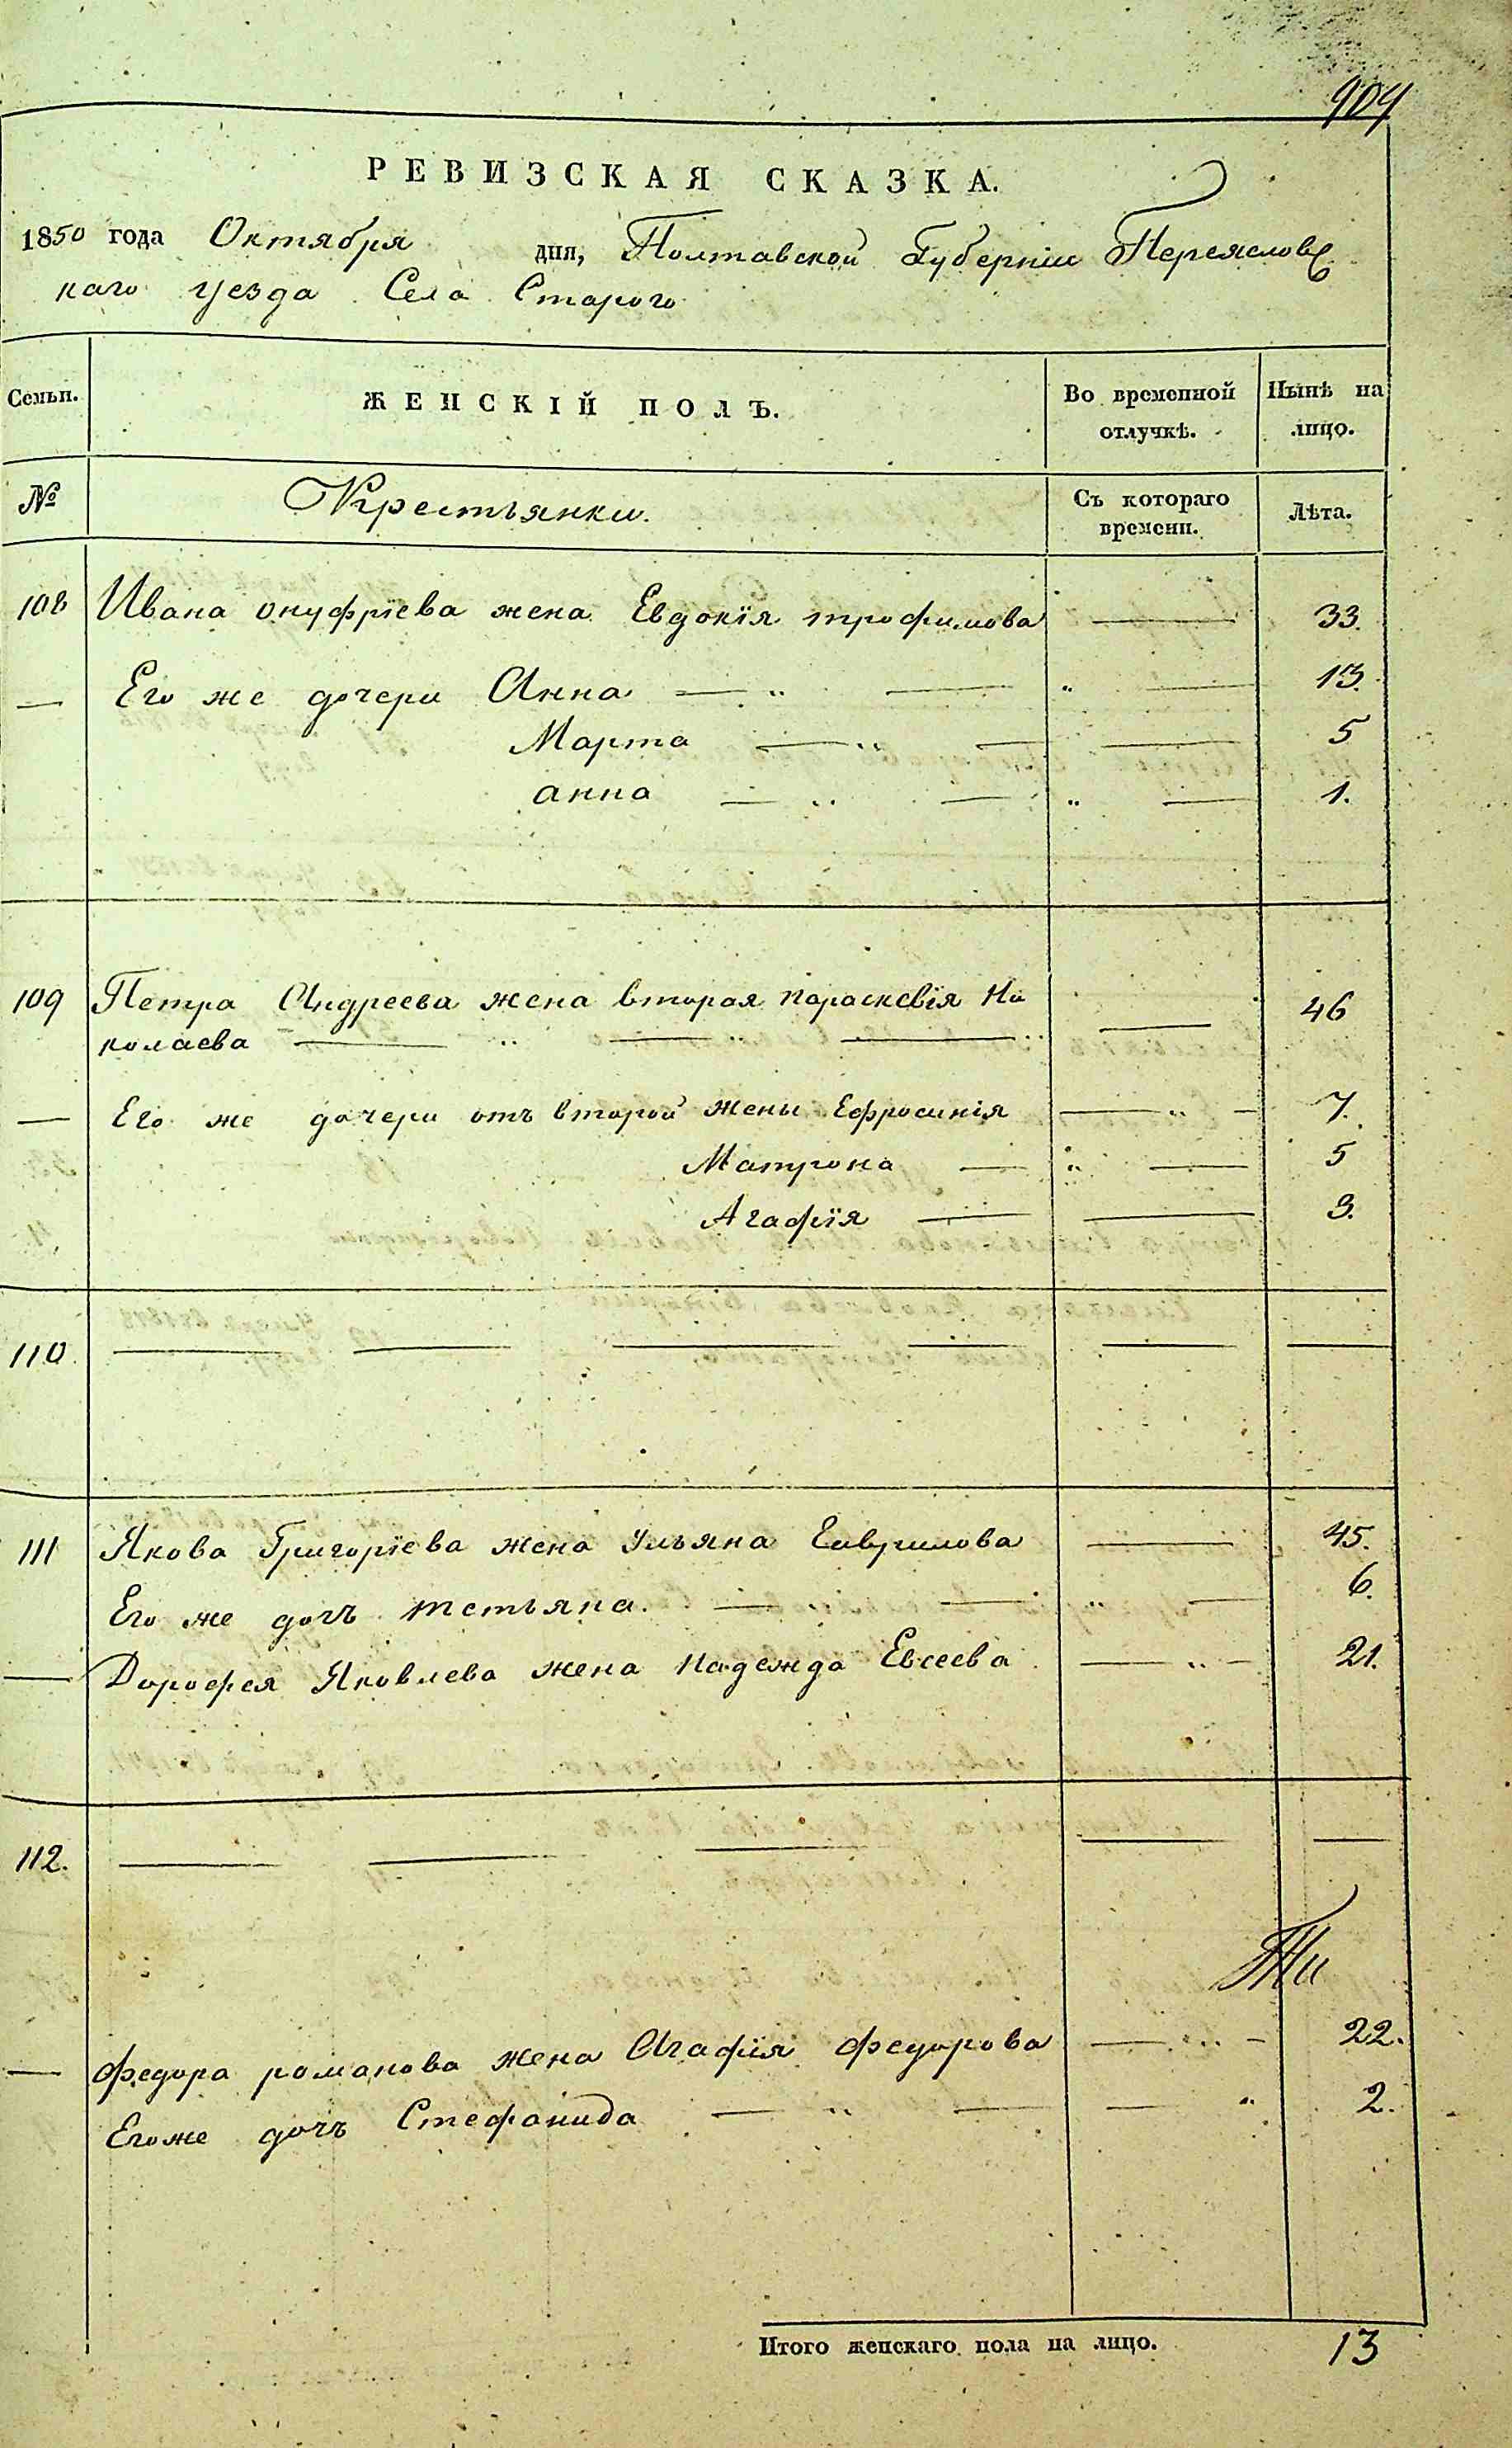 904
РЕВИЗСКАЯ СКАЗКА.
1850 года Октября дня, Полтавской Губернїи Переяславс
каго уезда Села Старого
Семьи. ЖЕНСКІЙ ПОЛЪ. Во временной отлучкѣ. Нынѣ на лицо.
№ Крестьянки. Съ котораго времени. Лѣта.
108 Ивана онуфрїева жена Евдокїя трофимова 33.
Его же дочери Анна 13.
Марта 5
анна 1.
109 Петра Андреева жена вторая параскевїя Ни 46
колаева
Его же дочери отъ второй жены Ефросинїя 7.
Матрона 5
Агафїя 3.
110.
111 Якова Григорїева жена Ульяна Гаврилова 45.
Его же дочъ тетьяна. 6.
Дорофея Яковлева жена Надежда Евсеева 21.
112.
федора романова жена Агафїя федорова 22.
Егоже дочъ Стефанида 2.
Итого женскаго пола на лицо. 13